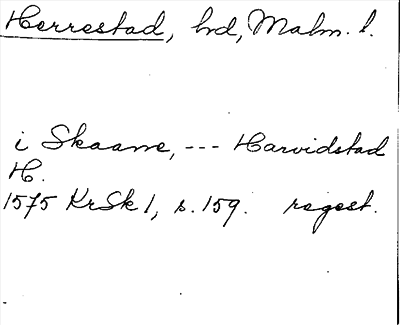 Herrestad, hd, Malm. l.
i Skaane, --- Harvidstad
H.
1575 KrSk 1, s. 159. regest.